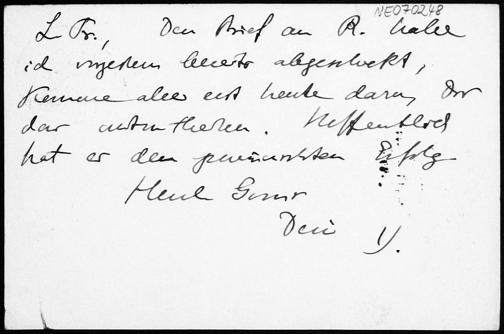 NE070248
L. Fr., Den Brief an R. habe
ich vorgestern bereits abgeschickt,
komme aber erst heute dazu, Dir
das mitzutheilen. Hoffentlich
hat er den gewünschten Erfolg
Herzl. Gruss
Dein